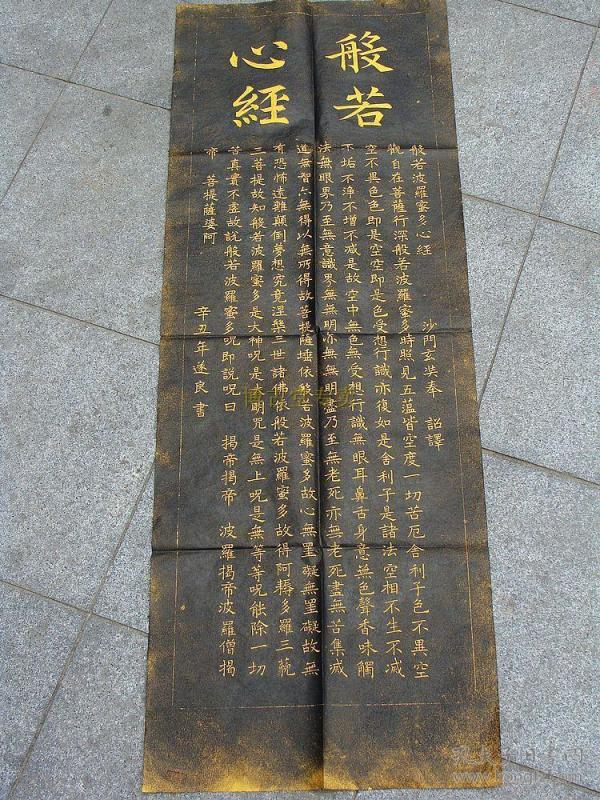 般若
心經
般若波羅蜜多心經 沙門玄奘奉 詔譯
觀自在菩薩行深般若波羅蜜多時照見五蘊皆空度一切苦厄舍利子色不異空
空不異色色即是空空即是色受想行識亦復如是舍利子是諸法空相不生不滅
不垢不淨不增不減是故空中無色無受想行識無眼耳鼻舌身意無色聲香味觸
法無眼界乃至無意識界無無明亦無無明盡乃至無老死亦無老死盡無苦集滅
道無智亦無得以無所得故菩提薩埵依般若波羅蜜多故心無罣礙無罣礙故無
有恐怖遠離顛倒夢想究竟涅槃三世諸佛依般若波羅蜜多故得阿耨多羅三藐
三菩提故知般若波羅蜜多是大神呪是大明咒是無上呪是無等等呪能除一切
苦真實不虛故說般若波羅蜜多呪即說呪曰 揭帝揭帝 波羅揭帝波羅僧揭
帝 菩提薩婆阿
辛丑年遂良書